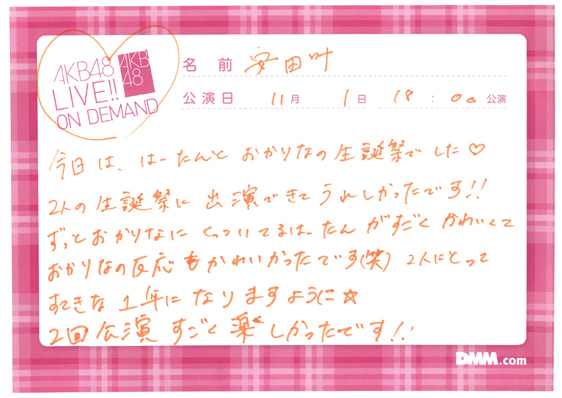 AKB48
LIVE!!
ON DEMAND
AKB
48
名前 安田叶
公演日 11月 1日 18:00公演
今日は、はーたんと おかりなの生誕祭でした♡
2人の生誕祭に 出演できて うれしかったです!!
ずっとおかりなに くっついてるはーたん がすごく かわいくて
おかりなの反応も かわいかったです(笑) 2人にとって
すてきな 1年に なりますように☆
2回公演 すごく 楽しかったです!!
DMM.com